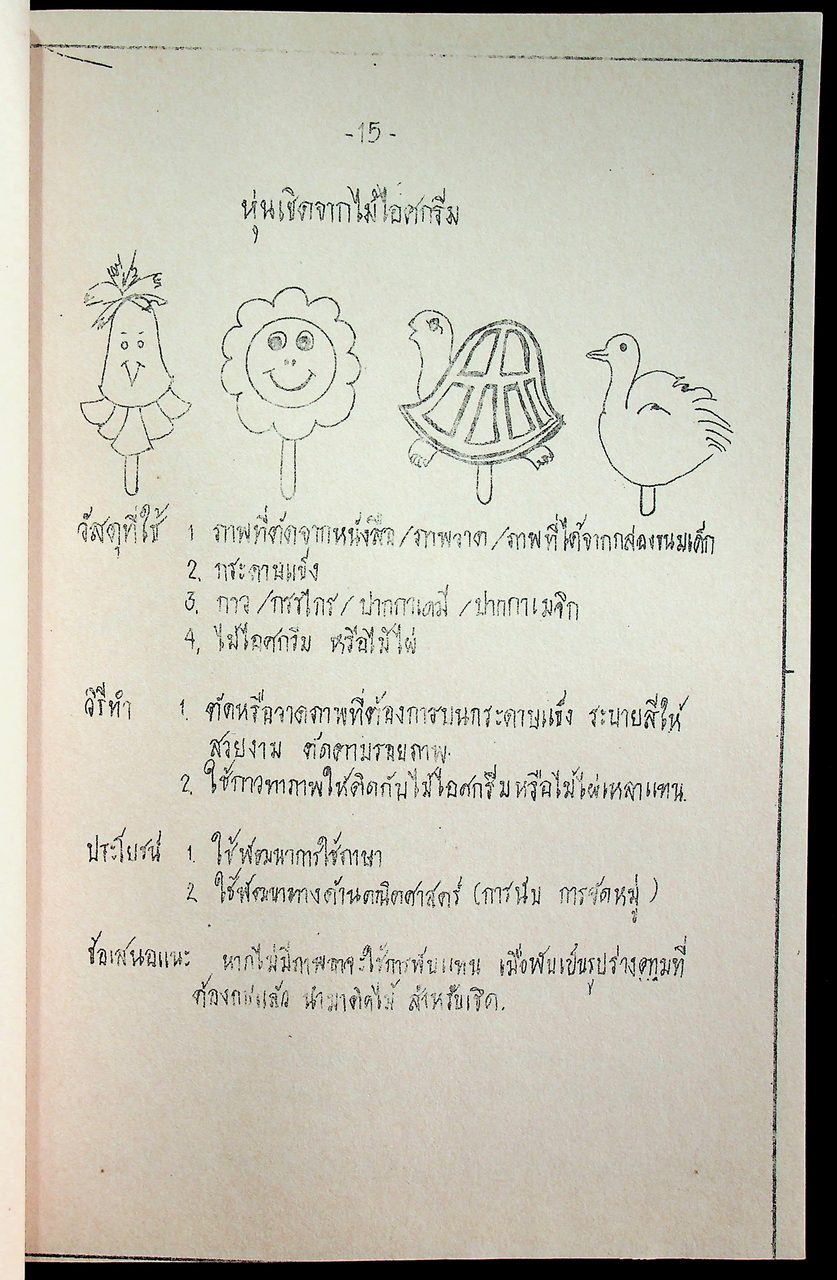 -15-
หุ่นเชิดจากไม้ไอศกรีม
วัสดุที่ใช้ 1 ภาพที่ตัดจากหนังสือ/ภาพวาด/ภาพที่ได้จากกล่องขนมเด็ก
2. กระดาษแข็ง
3. กาว/กรรไกร/ปากกาเคมี/ปากกาเมจิก
4. ไม้ไอศกรีม หรือไม้ไผ่
วิธีทำ 1. ตัดหรือวาดภาพที่ต้องการบนกระดาษแข็ง ระบายสีให้
สวยงาม ตัดตามรอยภาพ
2. ใช้กาวทาภาพให้ติดกับไม้ไอศกรีมหรือไม้ไผ่เหลาแทน
ประโยชน์ 1. ใช้พัฒนาการใช้ภาษา
2 ใช้พัฒนาทางด้านคณิตศาสตร์ (การนับ การจัดหมู่)
ข้อเสนอแนะ หากไม่มีภาพอาจจะใช้การพับแทน เมื่อพับเป็นรูปร่าง ที่
ต้องการแล้ว นำมาติดไม้ สำหรับเชิด.